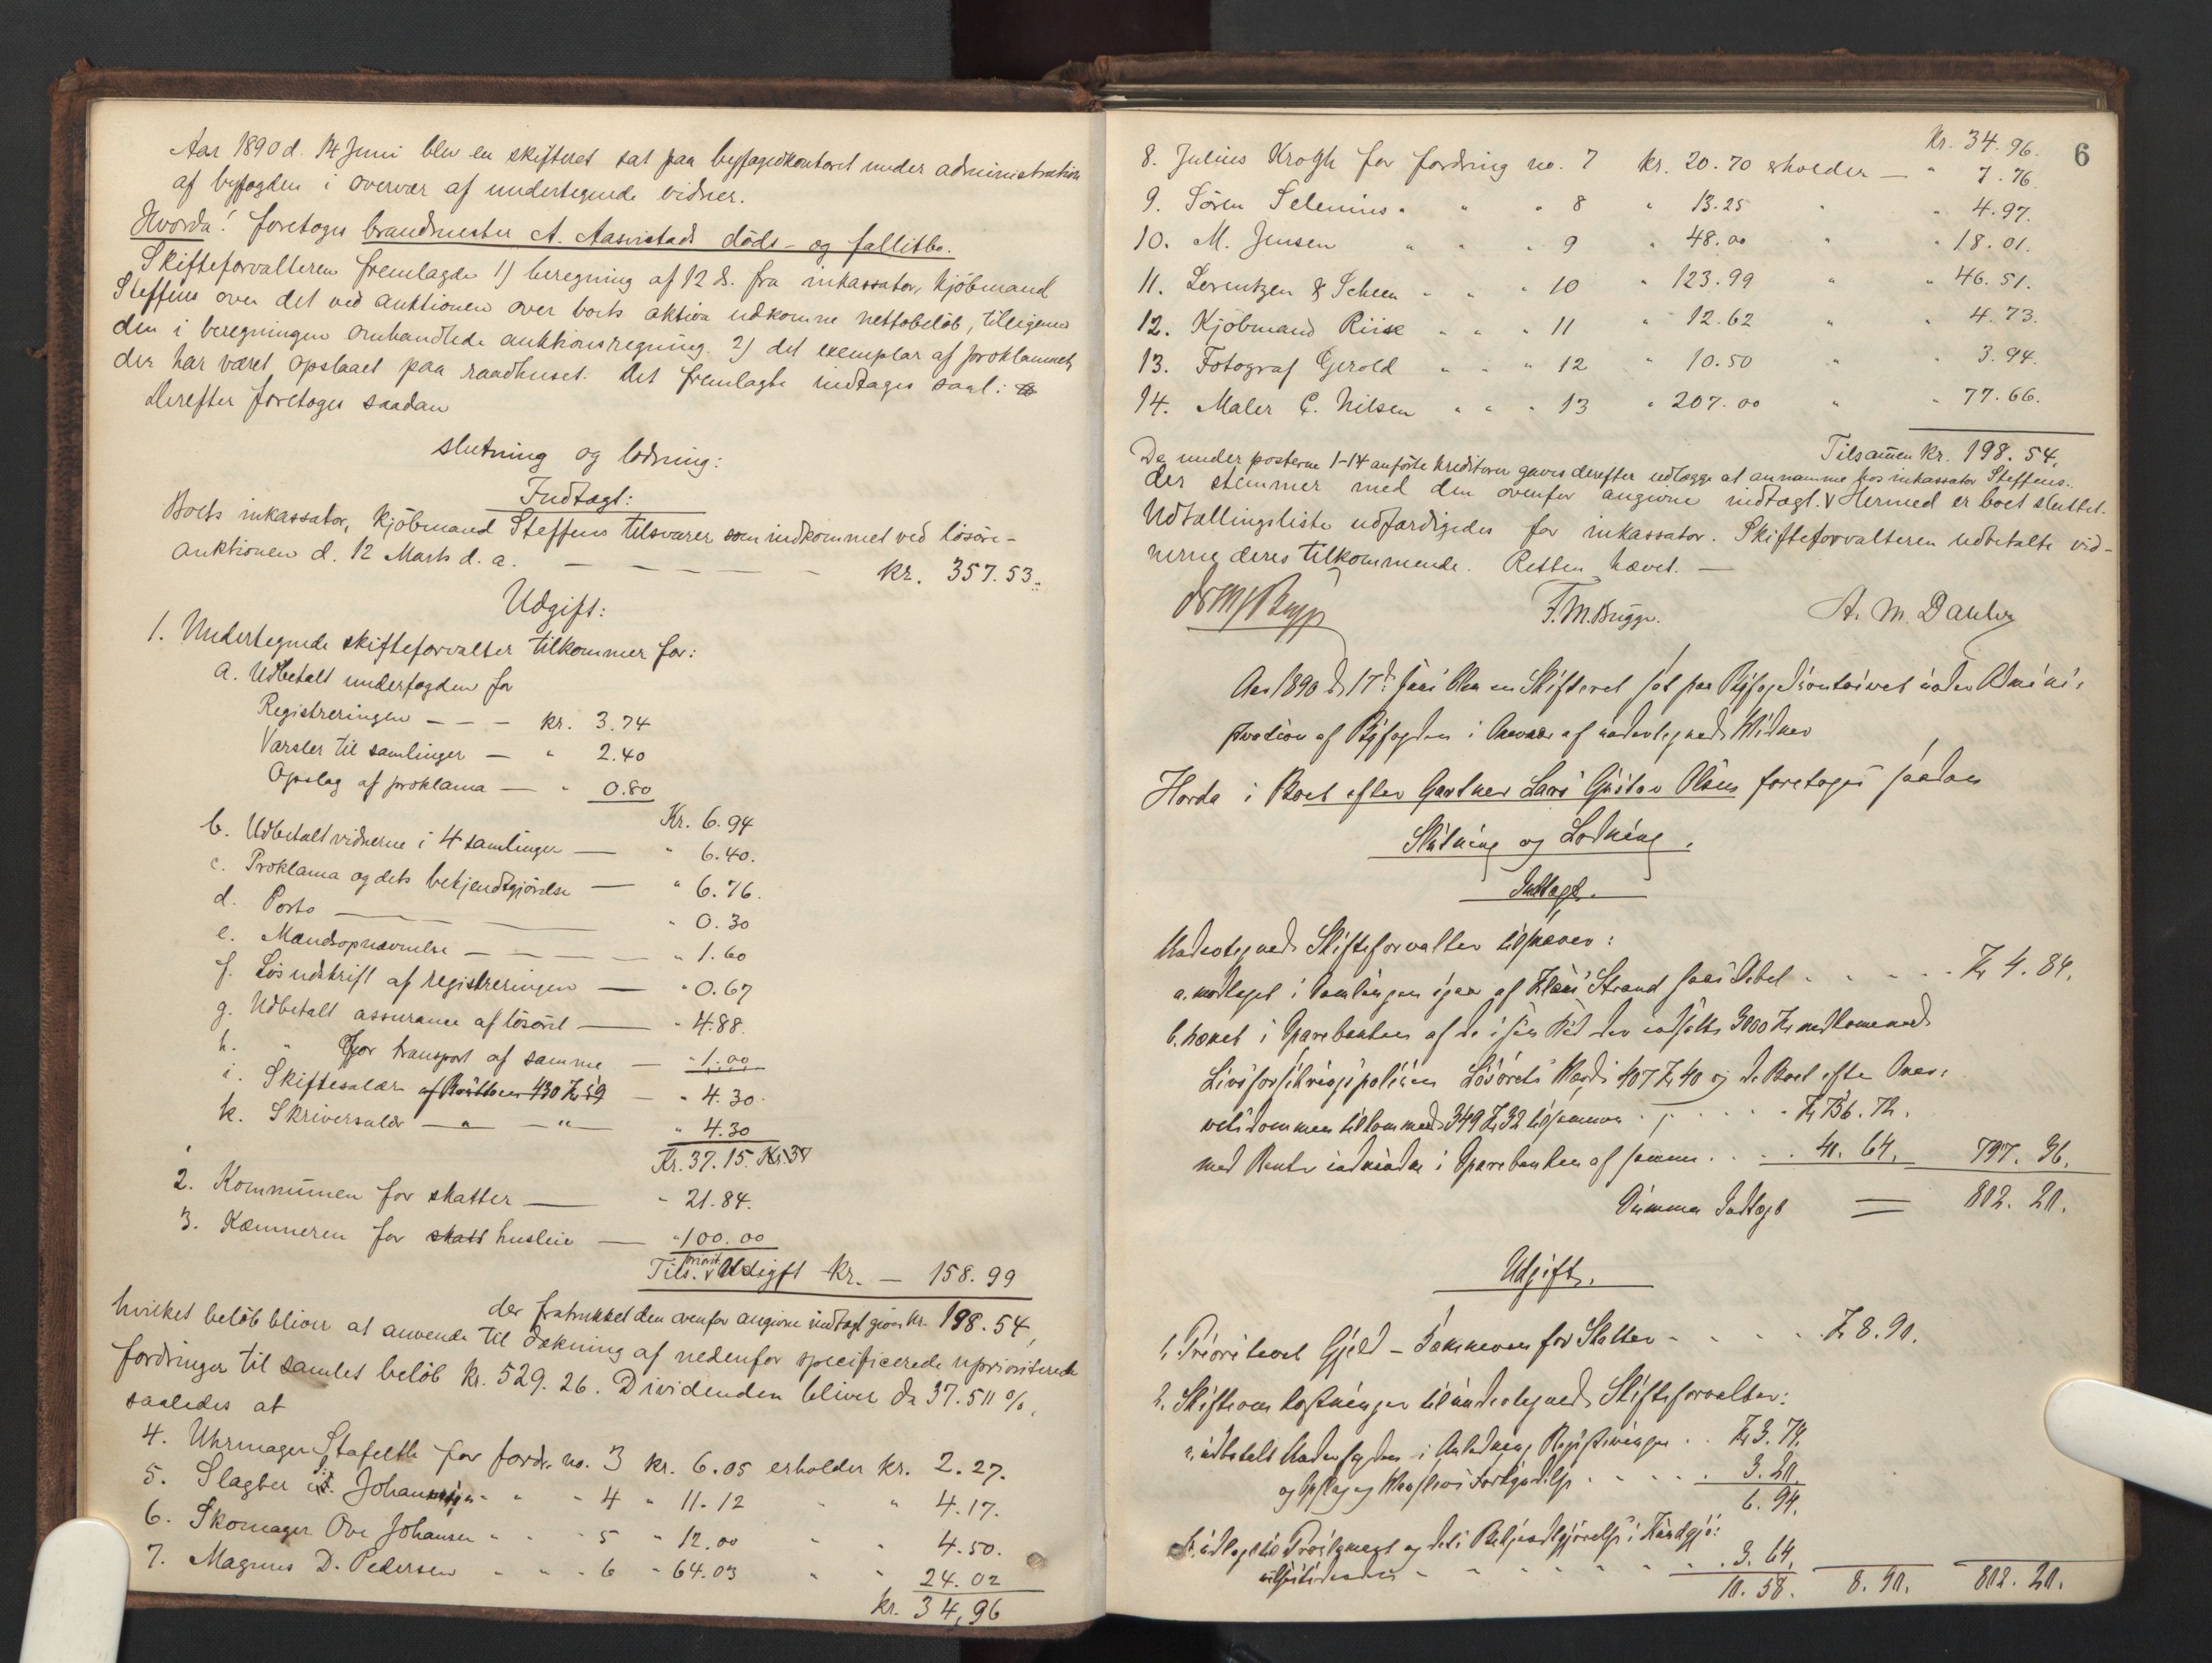 Aar 1890 d. 14 Juni blev en skifteret sat paa byfogedkontoret under administration
af byfogden i overvær af undertegnede vidner.
Hvorda! foretoges brandmester A. Aasvistads døds- og fallitbo.
Skifteforvalteren fremlagde 1) beregning af 12 ds. fra inkassator, kjøbmand
Steffens over det ved auktionen over boets aktiva udkomne nettobeløb, tilligemed
den i beregningen omhandlede auktionsregning. 2) det exemplar af proklamaet,
der har været opslaaet paa raadhuset. Det fremlagte indtages saal:
Derefter foretoges saadan
slutning og lodning:
Indtægt:
Boets inkassator, kjøbmand Steffens tilsvarer som indkommet ved løsøre-
auktionen d. 12 Marts d. a. — — — — — kr. 357.53.
Udgift:
1. Undertegnede skifteforvalter tilkommer for:
a. Udbetalt underfogden for
Registreringen — — — kr. 3.74
Varsler til samlinger — " 2.40
Opslag af proklama — " 0.80
Kr. 6.94
b. Udbetalt vidnerne i 4 samlinger — " 6.40.
c. Proklama og dets bekjendtgjørelse — " 6.76.
d. Porto — " 0.30
e. Mandsopnævnelse — — — — " 1.60
f. Løs udskrift af registreringen — " 0.67
g. Udbetalt assurance af løsøret — " 4.88.
h. " for transport af samme — " 1.00
i. Skiftesalær af Bruttoen 430 Kr 59 — " 4.30.
k. Skriversalær — " — " — " 4.30
Kr. 37.15. Kr 37
2. Kommunen for skatter — " 21.84.
3. Kæmneren for skatt husleie — " 100.00
Tils. priorit. Udgift kr. — 158.99
der fratrukket den ovenfor angivne indtægt giver kr. 198.54,
hvilket beløb bliver at anvende til dækning af nedenfor specificerede uprioriterede
fordringer til samlet beløb kr. 529.26. Dividenden bliver da 37.511 %,
saaledes at
4. Uhrmager Stafseth for fordr. no. 3 kr. 6.05 erholder kr. 2.27.
5. Slagter Johannesen " " " 4 " 11.12 " " 4.17.
6. Skomager Ove Johansen " " " 5 " 12.00 " " 4.50.
7. Magnus D. Pedersen " " " 6 " 64.03 " " 24.02
kr. 34,96
6
Kr. 34.96.
8. Julius Krogh for fordring no. 7 kr. 20.70 erholder — " 7.76.
9. Søren Selenius " " " 8 " 13.25 " " 4.97.
10. M. Jensen " " " 9 " 48.00 " " 18.01.
11. Lorentzen & Scheen " " " 10 " 123.99 " " 46.51.
12. Kjøbmand Riise " " " 11 " 12.62 " " 4.73.
13. Fotograf Gerold " " " 12 " 10.50 " " 3.94.
14. Maler C. Nilsen " " " 13 " 207.00 " " 77.66.
Tilsamen kr. 198.54,
De under posterne 1-14 anførte kreditorer gaves derefter udlægge at annamme hos inkassator Steffens.
der stemmer med den ovenfor angivne indtægt. V Hermed er boet sluttet.
Udtællingsliste udfærdigedes for inkassator. Skifteforvalteren udbetalte vid-
nerne deres tilkommende. Retten hævet. —
F. M. Brügge. A. M. Dahler
Aar 1890 d. 17d. Juni blev en Skifteret sat paa Byfogedkontoiret under Admini-
stration af Byfogden i Overvær af undertegnede Vidner
Horda i Boet efter Gartner Lars Gustav Olsen foretoges saadan
Slutning og Lodning.
Indtægt.
Undertegnede Skifteforvalter tilsvarer:
a. modtaget i Samlingen igaar af Strand sin Debet . . . . . Kr 4. 84.
b. hævet i Sparebanken af de i sin Tid der indsatte 3000 Kr vedkommende
Livsforsikringspolicen Løsørets Værdi 407 Kr 40 og de Boet efter
tilkommende 349 Kr 32 tilsammen . . . . . Kr 756. 72.
med Renter indvundne i Sparebanken af samme . . . . 40. 64. 797. 36.
Summa Indtægt = 802. 20.
Udgift.
1. Prioriteret Gjæld — Kæmneren for Skatter . . . . . Kr 8. 90.
2. Skifteomkostninger til undertegnede Skifteforvalter:
a. udbetalt Underfogden i Anledning Registreringen . . Kr 3. 74.
og Opslag og Varslers Forkyndelse . . . . . 3. 20.
6. 94.
b. udlagt til Proklamaet og dets Bekjendtgjørelse i Kundgjø:
relsestidende . . . . . . . 3. 64.
10. 58. 8. 90. 802. 20.